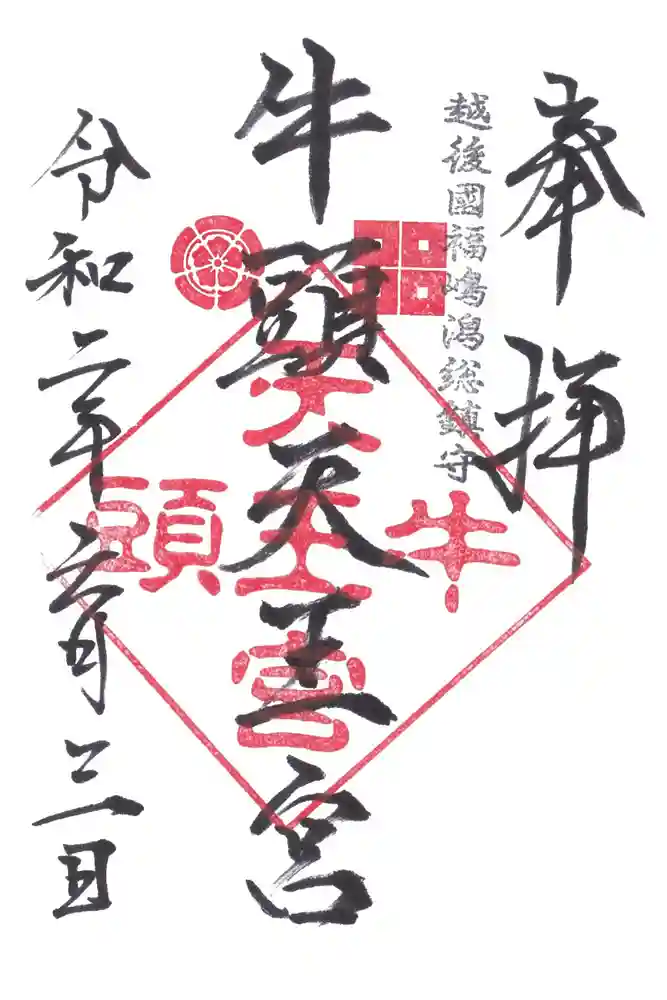 奉拝
越後國福嶋潟総鎮守
牛頭天王宮
牛頭
天王宮
令和二年六月三日